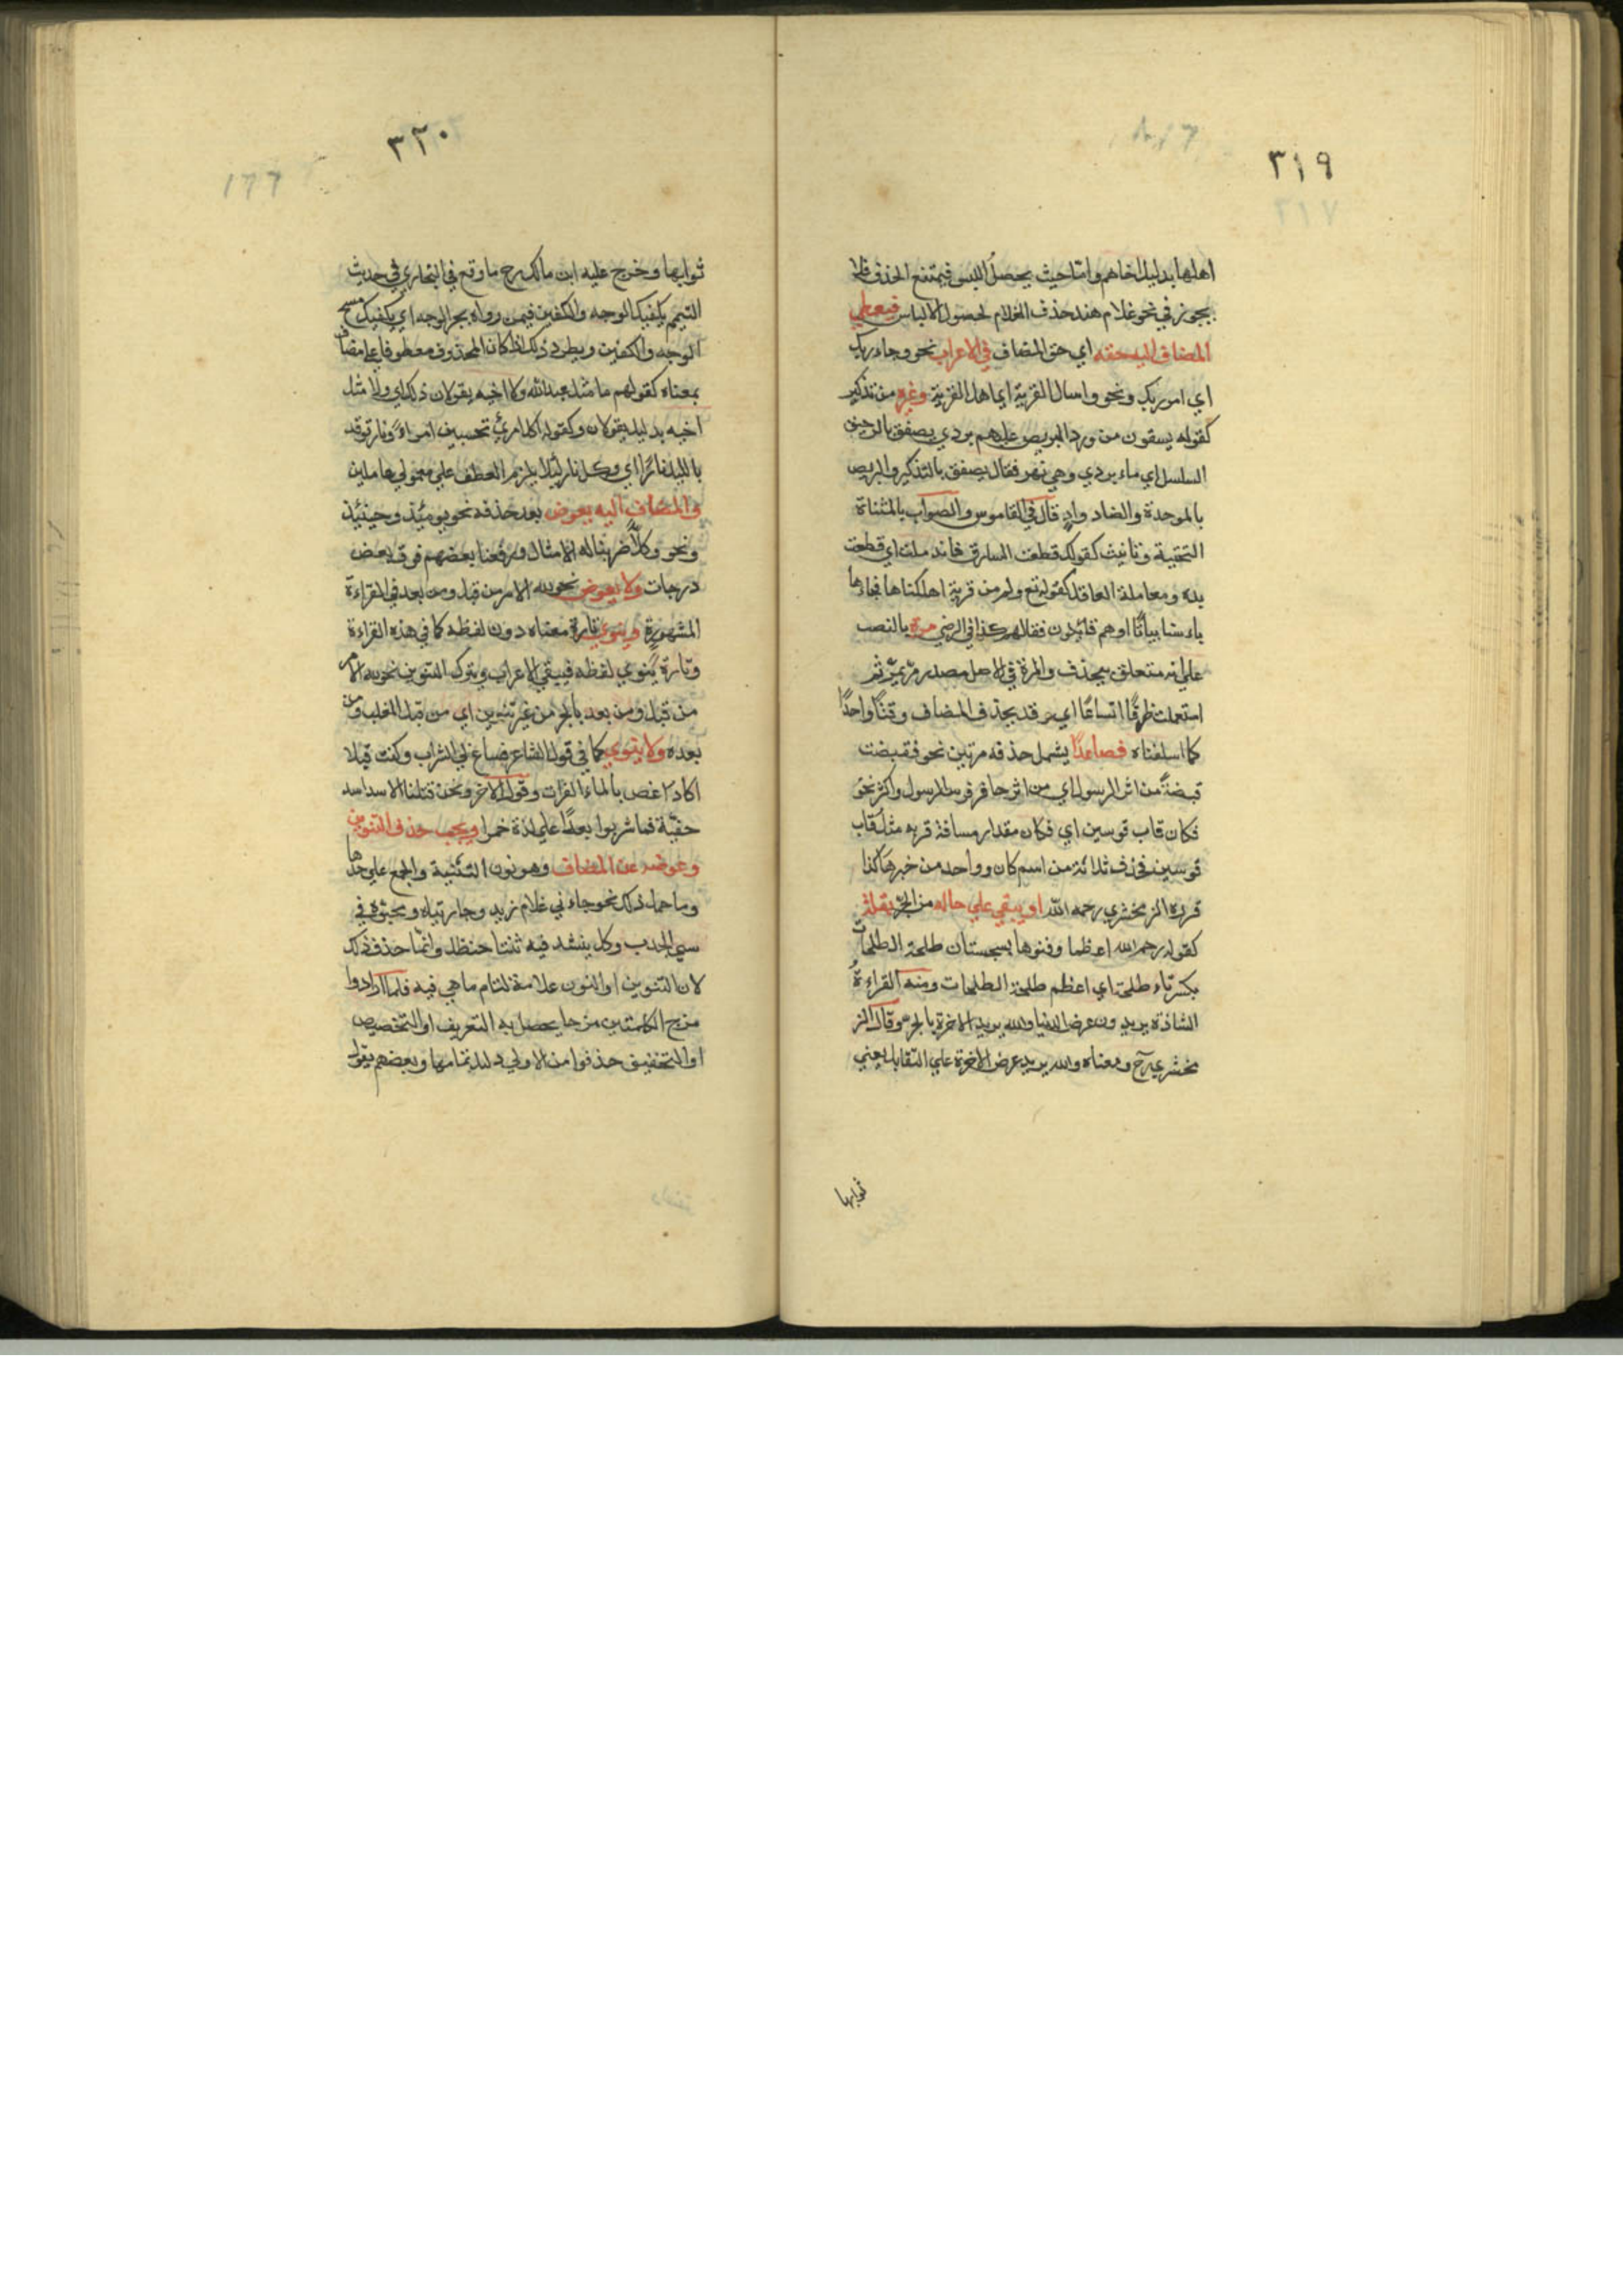 ٣١٩
اهلها بدليل اخاهم واما حيث يحصل اللبس فيمتنع الحذف فلا
يجوز في نحو غلام هند حذف الغلام لحصول الالباس فيعطي
المضاف اليه حقه اي حق المضاف في الاعراب نحو وجاء ربك
اي امر ربك ونحو واسال القرية اي اهل القرية وغيره من تذكير
كقوله يسقون من ورد البريص عليهم بردي يصفق بالرحيق
السلسل اي ماء بردي وهي نهر فقال يصفق بالتذكير والبريص
بالموحدة والضاد واد قال في القاموس والصواب بالمثناة
التحتية وتانيث كقولك قطعت السارق فاندملت اي قطعت
يده ومعاملة العاقل كقوله تع وكم من قرية اهلكناها فجاءها
باءسنا بياتا اوهم قائلون فقلالهم كذا في الرضي مرة بالنصب
علي انه متعلق بيحذف والمرة في الاصل مصدر مر يمر ثم
استعملت ظرفا اتساعا اي قد يحذف المضاف وقتا واحدا
كما اسلفناه فصاعدا يشمل حذفه مرتين نحو فقبضت
قبضة من اثر الرسول اي من اثر حافر فرس الرسول واكثر نحو
فكان قاب قوسين اي فكان مقدار مسافة قربه مثل قاب
قوسين فحذف ثلاثة من اسم كان وواحد من خبرها كذا
قرره الزمخشري رحمه الله او يبقي علي حاله من الجر بقلة
كقوله رحم الله اعظما دفنوها بسجستان طلحة الطلحات
بكسر تاء طلحة اي اعظم طلحة الطلحات ومنه القراءة
الشاذة يريدون عرض الدنيا والله يريد الاخرة بالجر وقال الز
مخشري رح ومعناه والله يريد عرض الاخرة علي التقابل يعني
ثوابها
٣٢٠
١٦٦
ثوابها وخرج عليه ابن مالك رح ما وقع في البخاري في حديث
التيمم يكفيك الوجه والكفين فيمن رواه بجر الوجه اي يكفيك مسح
الوجه والكفين ويطرد ذلك اذا كان المحذوف معطوفا علي مضاف
بمعناه كقولهم ما مثل عبد الله ولا اخيه يقولان ذلك اي ولا مثل
اخيه بدليل يقولان وكقوله اكل امرئ تحسبين امراء ونار توقد
بالليل نارا اي وكل نار ليلا يلزم العطف علي معمولي عاملين
و المضاف اليه يعوض بعد حذفه نحو يومئذ وحينئذ
ونحو وكلا ضربنا له الامثال ورفعنا بعضهم فوق بعض
درجات ولا يعوض نحو لله الامر من قبل ومن بعد في القراءة
المشهورة وينوي تارة معناه دون لفظه كما في هذه القراءة
وتارة ينوي لفظه فيبقي الاعراب ويترك التنوين نحو لله الامر
من قبل ومن بعد بالجر من غير تنوين اي من قبل الغلب ومن
بعده ولا ينوي كما في قول الشاعر فساغ لي الشراب وكنت قبلا
اكاد اغص بالماء الفرات وقول الاخر ونحن قتلنا الاسد اسد
خفية فما شربوا بعدا علي لذة خمرا ويجب حذف التنوين
وعوضه عن المضاف وهو نون التثنية والجمع علي حدها
وما حمل ذلك نحو جاءني غلام زيد وجارتيه ومحبوه في
سني الجدب وكل ينشد فيه ثنتا حنظل وانما حذف ذلك
لان التنوين او النون علامة لتمام ما هي فيه فلما ارادوا
مزج الكلمتين مزجا يحصل به التعريف او التخصيص
او التخفيف حذفوا من الاولي دليل تمامها وبعضهم يقول